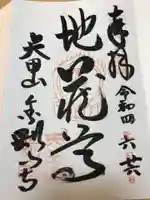 奉拝
令和四
六 廿六
地蔵尊
矢田山 金剛山寺